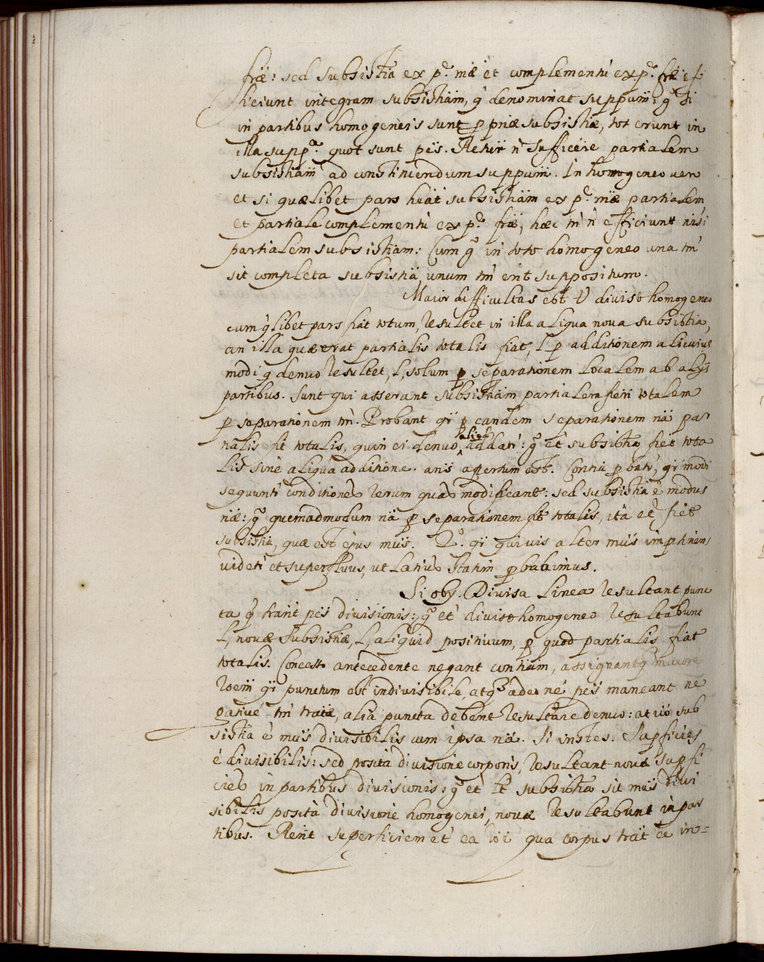 fræ: sed subsistia ex p.e mæ et complementũ ex p.e fræ ef
ficiunt integram subsistiam, q̃ denominat suppum̃: q.a si
in partibus homogeneis sunt ꝓpriæ subsistiæ, tot erunt in
illa supp.a quot sunt p̃es. Rr̃ ñ sufficere partialem
subsistiam ad constituendum suppum̃. In homogeneo vero
et si quælibet pars h̃at subsistiam ex p.e mæ partialem
et partiale complementũ ex p.e fræ, hæc tñ ñ efficiunt nisi
partialem subsistiam: Cum q.e in toto homogeneo una tm̃
sit completa subsistia, unum tm̃ erit suppositum.
Maior difficultas est ũ diviso homogeneo
cum q̃libet pars fiat totum, resultet in illa aliqua nova subsistia,
an illa quæ erat partialis totalis fiat, l̃ ꝑ additionem alicuius
modi q̃ denuo resultet, l̃ solum ꝑ separationem localem ab alijs
partibus. Sunt qui asserant subsistiam partialem fieri totalem
ꝑ separationem tm̃. Probant q̃i ꝑ eandem separationem nã par
tialis fit totalis, quin ei denuo aliq̃ addat̃: q.e et subsistia fiet tota
lis sine aliqua additione. ans̃ apertum est. Conse.a ꝓbat̃, q̃i modi
sequunt̃ conditiones rerum quas modificant: sed subsistia ẽ modus
næ: q.e quemadmodum nã ꝑ separationem fit totalis, ita et fiet
subsistia, quæ est ejus mus̃. 2.o q̃i q̃uis alter mus̃ impertinens
videt̃ et superfluus, ut latius statim ꝓbabimus.
Si obj. Divisa linea resultant punc
ta q̃ trãnt p̃es divisionis: q.e et diviso homogeneo resultabunt
l̃ novæ subsistiæ, l̃ aliquid positivum, ꝑ quod partialis fiat
totalis. Concesso antecedente negant conse.am, assignantq̃ maiore
roem̃ q̃i punctum est indivisibile, atq.e adeo ne p̃es maneant ne
gativé tm̃ tratæ, alia puncta debent resultare denuo: at vò sub
sistia ẽ mus̃ divisibilis cum ipsa nã. Si instes. Supficies
ẽ divisibilis: sed posita divisione corporis, resultant novæ supfi
cies in partibus divisionis: q.e et lt̃ subsistia sit mus̃ divi
sibilis posita divisione homogenei, novæ resultabunt in par
tibus. Rr̃nt superficiem et ea roĩ qua corpus trat ẽe in=